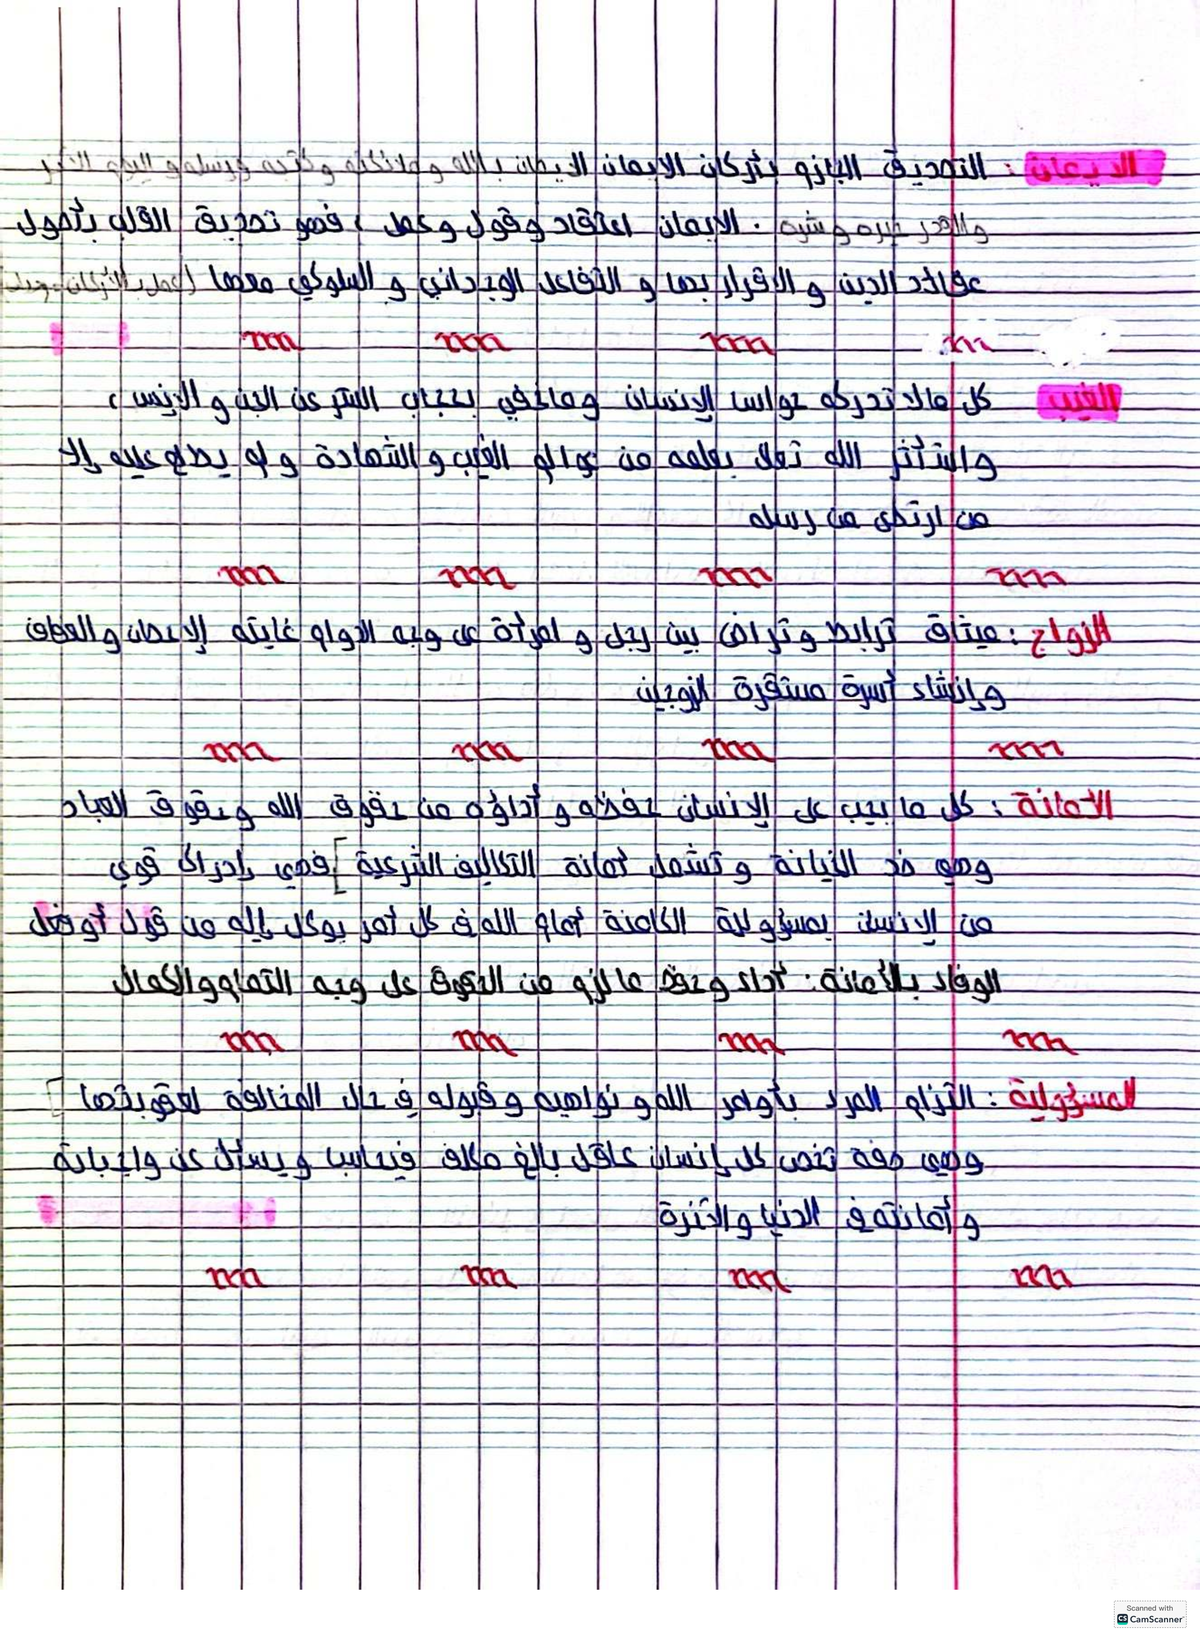 الايمان : التصديق الجازم بأركان الايمان الايمان بالله وملائكته وكتبه ورسله و اليوم الآخر
والقدر خيره و شره . الايمان اعتقاد وقول وعمل ، فهو تصديق القلب بأصول
عقائد الدين و الاقرار بها و التفاعل الوجداني و السلوكي معها (عمل بالأركان
الغيب كل مالا تدركه حواس الإنسان وماخفي بحجاب الستر عن الجن و الإنس ،
واستأثر الله تعالى بعلمه من عوالم الغيب و الشهادة و لم يطلع عليه إلا
من ارتضى من رسله
الزواج : ميثاق ترابط وتراض بين رجل و امرأة على وجه الدوام غايته الإحصان و العفاف
وإنشاء أسرة مستقرة الزوجين
الأمانة : كل ما يجب على الإنسان حفظه و أداؤه من حقوق الله وحقوق العباد
وهو ضد الخيانة و تشمل أمانة التكاليف الشرعية ] فهي إدراك قوي
من الإنسان بمسؤولية الكامنة أمام الله في كل أمر يوكل إليه من قول أو فعل
الوفاء بالأمانة : أداء وحفظ مالزم من الحقوق على وجه التمام والكمال
المسؤولية : التزام المرء بأوامر الله و نواهيه و قبوله في حال المخالفة لعقوبتها [
وهي صفة تخص كل إنسان عاقل بالغ مكلف فيحاسب و يسأل عن واجباته
و أمانته في الدنيا و الآخرة
Scanned with
CS CamScanner